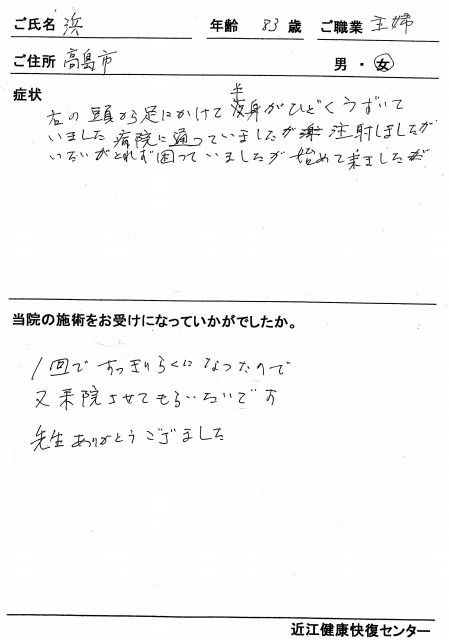 ご氏名 浜 年齢 83 歳 ご職業 主婦
ご住所 高島市 男・女
症状
右の頭から足にかけて半身がひどくうずいて
いました 病院に通っていましたが 注射しましたが
いたいがとれず困っていましたが 始めて来ました
当院の施術をお受けになっていかがでしたか。
1回ですっきりらくになったので
又来院させてもらいたいです
先生ありがとうござました
近江健康快復センター